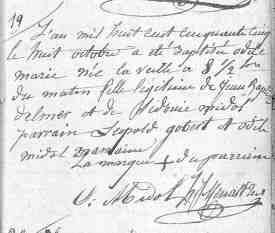 19
L'an mil huit cent cinquante cinq
le huit octobre a été baptisée odile
marie née la veille à 8 1/2 hrs
du matin fille légitime de Jean
delmer et de Sidonie midol
parrain Léopold gobert et odile
midol marraine
La marque + du parrain
O. Midol